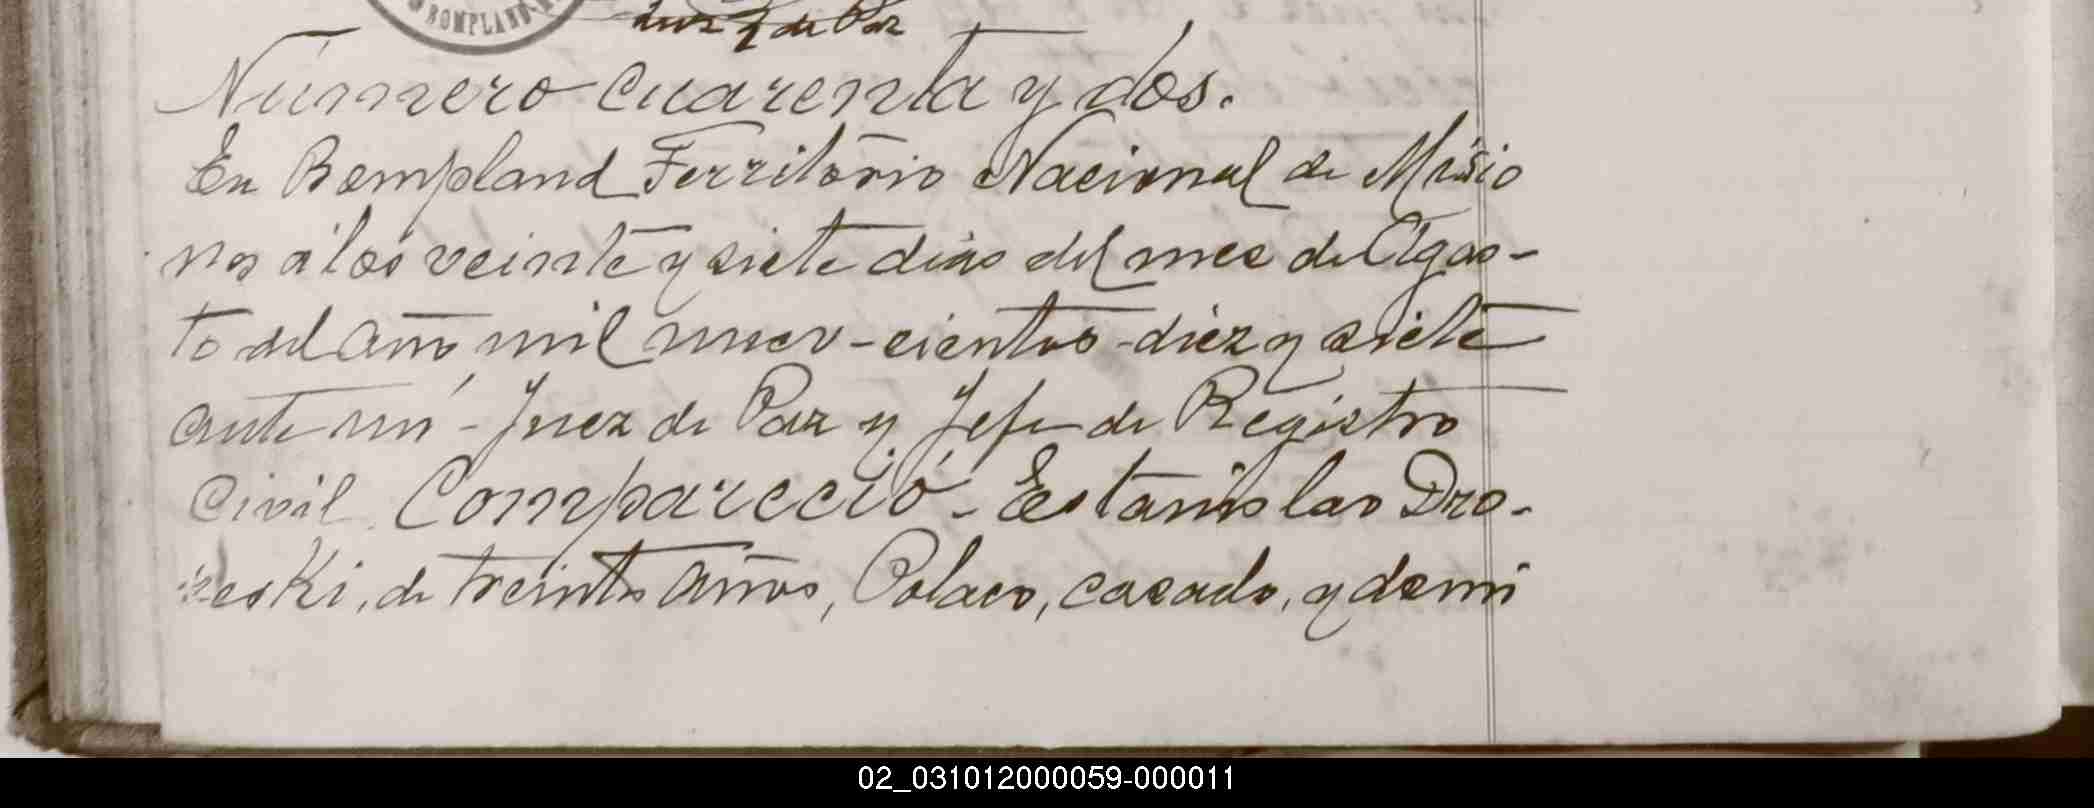 BOMPLAND
Juez de Paz
Número cuarenta y dos.
En Bompland Territorio Nacional de Misio
nes á los veinte y siete dias del mes de Agos-
to del año mil nuev-cientos diez y siete
ante mi - Juez de Paz y Jefe de Registro
Civil. Compareció - Estanislao Dro-
zeski, de treinta años, Polaco, casado, y domi
02_031012000059-000011